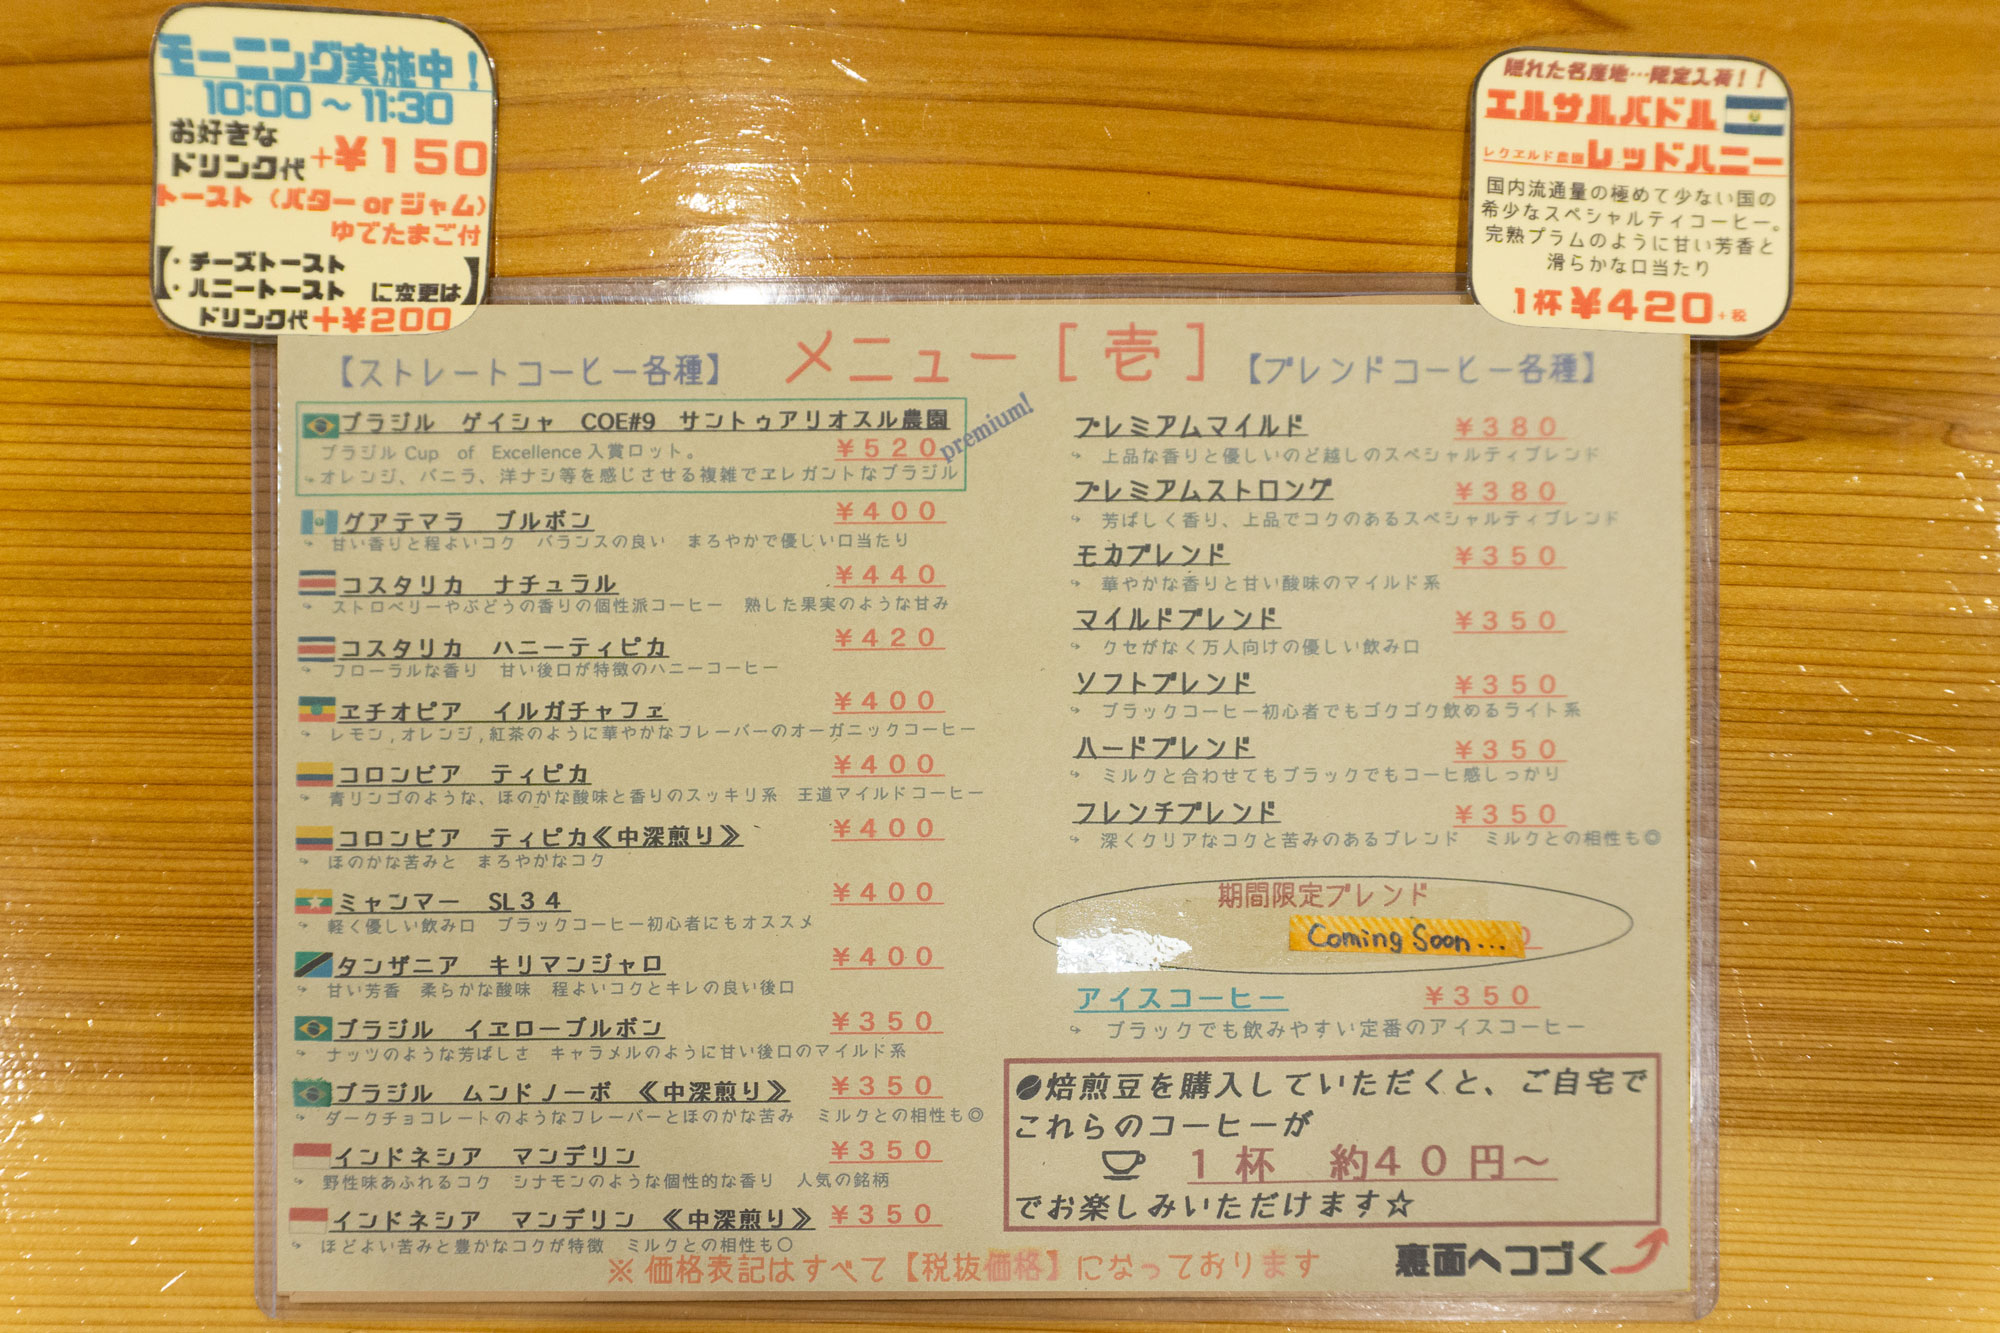 モーニング実施中!
10:00 ~ 11:30
お好きな
ドリンク代 +¥150
トースト(バター or ジャム)
ゆでたまご付
【・チーズトースト
・ハニートースト に変更は】
ドリンク代 +¥200
隠れた名産地…限定入荷!!
エルサルバドル
レクヱルド農園 レッドハニー
国内流通量の極めて少ない国の
希少なスペシャルティコーヒー。
完熟プラムのように甘い芳香と
滑らかな口当たり
1杯 ¥420 +税
メニュー[壱]
【ストレートコーヒー各種】
ブラジル ゲイシャ COE#9 サントゥアリオスル農園
ブラジル Cup of Excellence 入賞ロット。 ¥520
premium!
オレンジ、バニラ、洋ナシ等を感じさせる複雑でヱレガントなブラジル
グアテマラ ブルボン ¥400
甘い香りと程よいコク バランスの良い まろやかで優しい口当たり
コスタリカ ナチュラル ¥440
ストロベリーやぶどうの香りの個性派コーヒー 熟した果実のような甘み
コスタリカ ハニーティピカ ¥420
フローラルな香り 甘い後口が特徴のハニーコーヒー
ヱチオピア イルガチャフヱ ¥400
レモン,オレンジ,紅茶のように華やかなフレーバーのオーガニックコーヒー
コロンビア ティピカ ¥400
青リンゴのような、ほのかな酸味と香りのスッキリ系 王道マイルドコーヒー
コロンビア ティピカ≪中深煎り≫ ¥400
ほのかな苦みと まろやかなコク
ミャンマー SL34 ¥400
軽く優しい飲み口 ブラックコーヒー初心者にもオススメ
タンザニア キリマンジャロ ¥400
甘い芳香 柔らかな酸味 程よいコクとキレの良い後口
ブラジル イヱローブルボン ¥350
ナッツのような芳ばしさ キャラメルのように甘い後口のマイルド系
ブラジル ムンドノーボ ≪中深煎り≫ ¥350
ダークチョコレートのようなフレーバーとほのかな苦み ミルクとの相性も◎
インドネシア マンデリン ¥350
野性味あふれるコク シナモンのような個性的な香り 人気の銘柄
インドネシア マンデリン ≪中深煎り≫ ¥350
ほどよい苦みと豊かなコクが特徴 ミルクとの相性も○
【ブレンドコーヒー各種】
プレミアムマイルド ¥380
上品な香りと優しいのど越しのスペシャルティブレンド
プレミアムストロング ¥380
芳ばしく香り、上品でコクのあるスペシャルティブレンド
モカブレンド ¥350
華やかな香りと甘い酸味のマイルド系
マイルドブレンド ¥350
クセがなく万人向けの優しい飲み口
ソフトブレンド ¥350
ブラックコーヒー初心者でもゴクゴク飲めるライト系
ハードブレンド ¥350
ミルクと合わせてもブラックでもコーヒ感しっかり
フレンチブレンド ¥350
深くクリアなコクと苦みのあるブレンド ミルクとの相性も◎
期間限定ブレンド
Coming Soon... 0
アイスコーヒー ¥350
ブラックでも飲みやすい定番のアイスコーヒー
焙煎豆を購入していただくと、ご自宅で
これらのコーヒーが
1杯 約40円～
でお楽しみいただけます☆
※価格表記はすべて【税抜価格】になっております
裏面へつづく